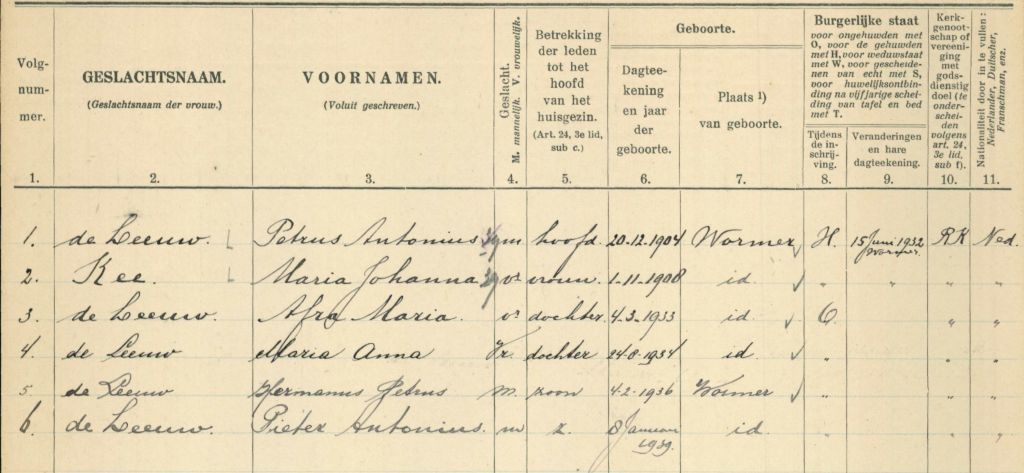 Volg-
num-
mer.
GESLACHTSNAAM.
(Geslachtsnaam der vrouw.)
VOORNAMEN.
(Voluit geschreven.)
Geslacht.
M. mannelijk. V. vrouwelijk.
Betrekking
der leden
tot het
hoofd
van het
huisgezin.
(Art. 24, 3e lid,
sub c.)
Geboorte.
Dagtee-
kening
en jaar
der
geboorte.
Plaats ¹)
van geboorte.
Burgerlijke staat
voor ongehuwden met
O, voor de gehuwden
met H, voor weduwstaat
met W, voor gescheide-
nen van echt met S,
voor huwelijksontbin-
ding na vijfjarige schei-
ding van tafel en bed
met T.
Tijdens
de in-
schrij-
ving.
Veranderingen
en hare
dagteekening.
Kerk-
genoot-
schap of
vereeni-
ging
met
gods-
dienstig
doel (te
onder-
schei-
den
volgens
art. 24,
3e lid,
sub f).
Nationaliteit door in te vullen:
Nederlander, Duitscher,
Franschman, enz.
1. 2. 3. 4. 5. 6. 7. 8. 9. 10. 11.
1. de Leeuw. Petrus Antonius m hoofd. 20-12-1904 Wormer H. 15 Juni 1932 Wormer. RK Ned.
2. Kee. Maria Johanna v. vrouw. 1-11-1908 id. " " " "
3. de Leeuw. Afra Maria. v. dochter. 4-3-1933 id. O. " "
4. de Leeuw Maria Anna Vr. dochter 24-8-1934 id. " " "
5 de Leeuw Hermanus Petrus m. zoon 4-2-1936 Wormer " " "
6. de Leeuw. Pieter Antonius. m z. 8 Januari 1939. id. " " "